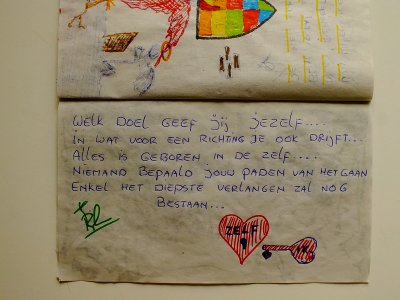 WELK DOEL GEEF JIJ JEZELF....
IN WAT VOOR EEN RICHTING JE OOK DRIJFT....
ALLES IS GEBOREN IN DE ZELF.....
NIEMAND BEPAALD JOUW PADEN VAN HET GAAN
ENKEL HET DIEPSTE VERLANGEN ZAL NOG
BESTAAN...
ZELF